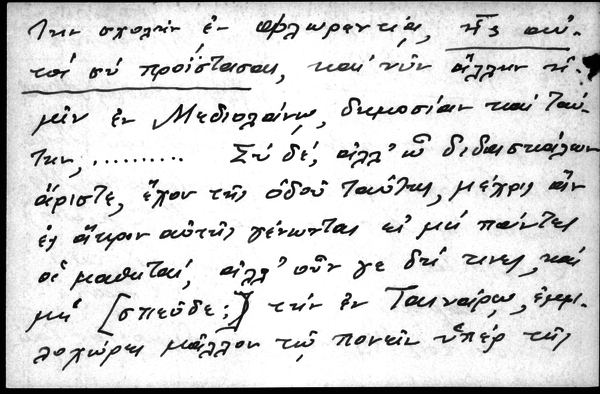 την σχολὴν ἐν Φλωρεντίᾳ, ἧς αὐ-
τοὶ σὺ προΐστασαι, καὶ νῦν ἄλλην ἡ-
μῖν ἐν Μεδιολάνῳ, δημοσίαν καὶ ταύ-
την, .......... Σὺ δέ, ἀλλ' ὦ διδασκάλων
ἄριστε, ἔχου τῆς ὁδοῦ ταύτης, μέχρις ἂν
ἐς ἄκρον αὐτῆς γένωνται εἰ μὴ πάντες
οἱ μαθηταί, ἀλλ' οὖν γε δή τινες, καὶ
μὴ [σπεῦδε;] τὴν ἐν Ταιναίρῳ, ἐμφι-
λοχώρει μᾶλλον τῷ πονεῖν ὑπὲρ τῆς